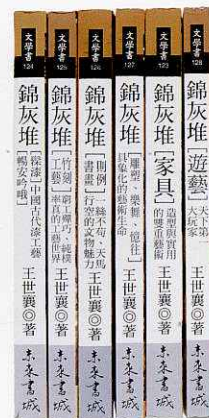 文學書
124
錦灰堆
[髹漆]中國古代漆工藝
[暢安吟哦]
王世襄◎著
未來書城
文學書
125
錦灰堆
[竹刻]窮工極巧、純樸
[工藝]率真的工藝世界
王世襄◎著
未來書城
文學書
126
錦灰堆
[則例]一絲不苟、天馬
[書畫]行空的文物魅力
王世襄◎著
未來書城
文學書
127
錦灰堆
[雕塑、樂舞、憶往]
具象化的藝術生命
王世襄◎著
未來書城
文學書
123
錦灰堆
[家具]造型與實用
的雙重藝術
王世襄◎著
未來書城
文學書
128
錦灰堆
[遊藝]天下第一
大玩家
王世襄◎著
未來書城